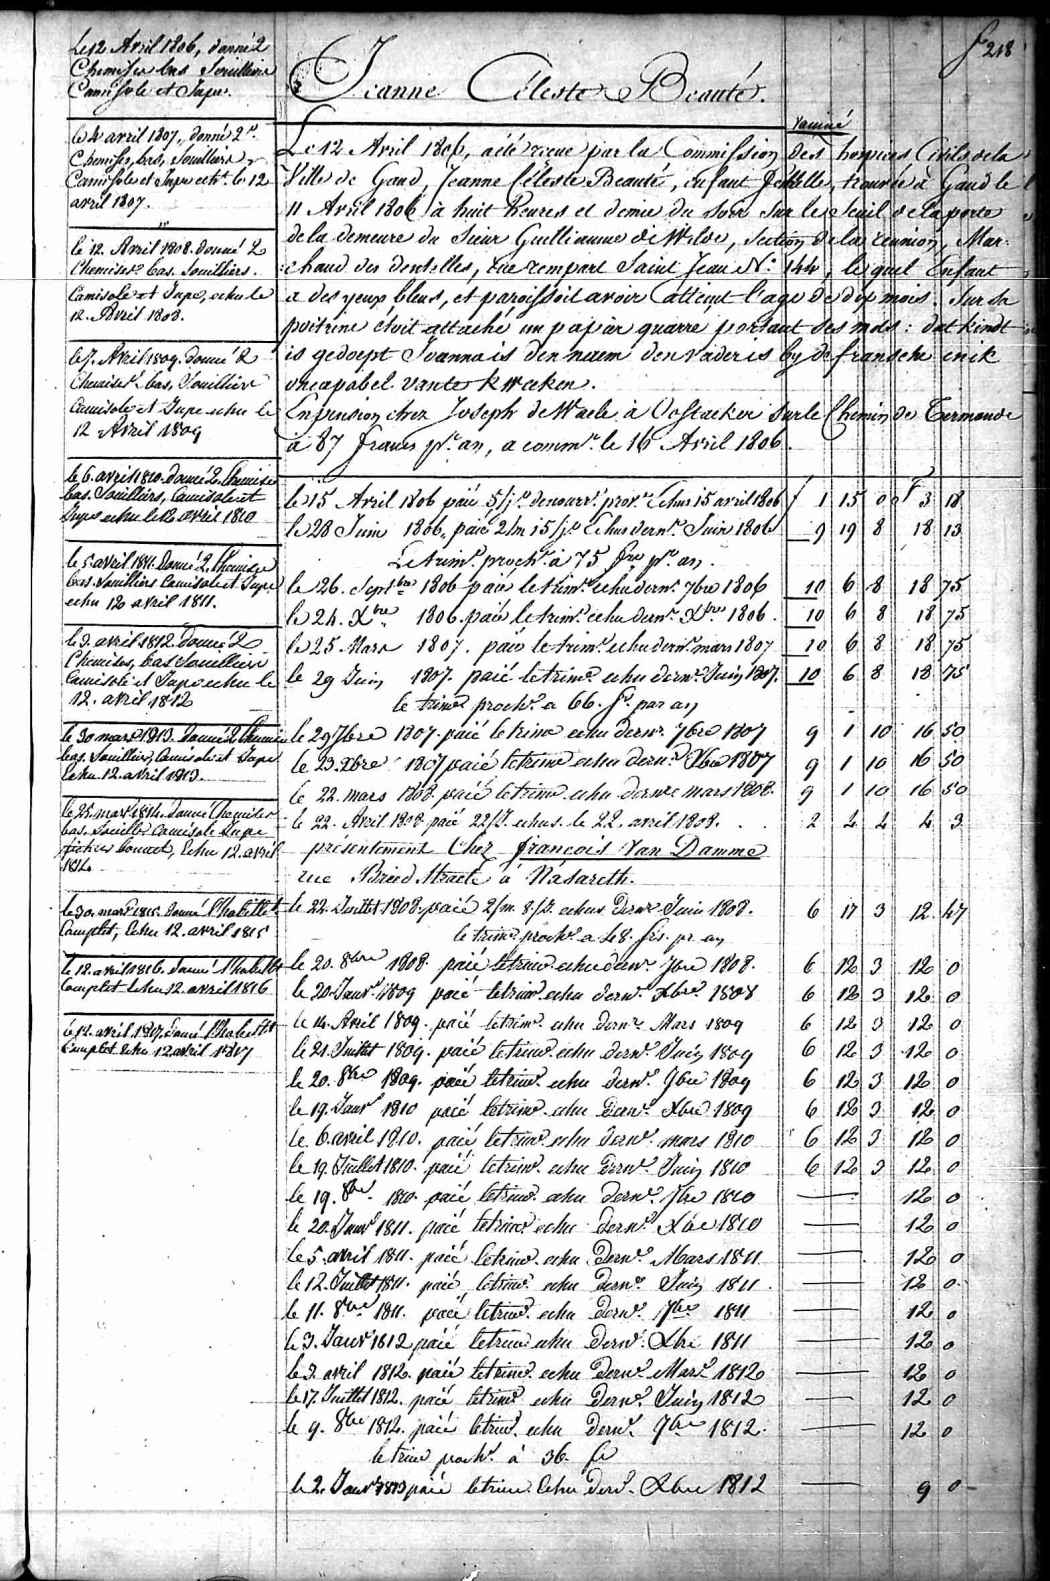 fo 218
Jeanne Céleste Beauté.
vacciné
Le 12 Avril 1806, a été recue par la Commission des hospices Civils de la
Ville de Gand, Jeanne Céleste Beauté, enfant femelle, trouvée à Gand le
11 Avril 1806 à huit heures et demie du soir sur le seuil de la porte
de la demeure du Sieur Guilliaume de Wilde, section de la réunion, Mar-
chand des dentelles, rue rempart Saint Jean No. 144, lequel Enfant
a des yeux bleus, et paroissoit avoir atteint l'age de dix mois. Sur sa
poitrine étoit attaché un papier quarré portant ses mots: dat kindt
is gedoept Joanna is den naem den vader is by de fransche en ik
oncapabel van te kweeken.
En pension chez Joseph de Waele à Oostacker sur le Chemin de Termonde
à 87 francs pr. an, a commcé. le 16 Avril 1806.
le 15 Avril 1806 paié 5/jrs de nourr. prov. echus 15 avril 1806 f 1 15 0 f 3 18
le 28 Juin 1806, paié 2/m 15/jrs Echus dern. Juin 1806 9 19 8 18 13
Le trimr. proch. à 75 frs pr. an.
le 26. Septbre 1806 paié le trimr. echu dern. 7bre 1806 10 6 8 18 75
le 24. Xbre 1806. paié le trimr. echu dern. Xbre 1806. 10 6 8 18 75
le 25 Mars 1807. paié le trimr. echu dern. mars 1807 10 6 8 18 75
le 29 Juin 1807. paié le trimr. echu dern. Juin 1807. 10 6 8 18 75
le trimr proch. a 66. fs. par an
le 29 7bre 1807. paié le trimr echu dern. 7bre 1807 9 1 10 16 50
le 23. Xbre 1807 paié le trimr echu dern. Xbre 1807 9 1 10 16 50
le 22. mars 1808. paié le trimr echu dernr mars 1808. 9 1 10 16 50
le 22. Avril 1808 paié 22/J. echus. le 22. avril 1808. 2 4 4 4 3
présentement Chez françois Van Damme
rue Breed Straete à Nasareth.
le 22. Juillet 1808. paié 2/m. 8/J. echus dernr Juin 1808. 6 17 3 12. 47
le trimr. proch. a 48. frs. pr. an
le 20. 8bre 1808. paié le trimr echu dernr. 7bre 1808. 6 12 3 12 0
le 20. Janv. 1809 paié le trimr. echu dernr. Xbre 1808 6 12 3 12 0
le 14. Avril 1809. paié le trimr. echu dernr. Mars 1809 6 12 3 12 0
le 21. Juillet 1809. paié le trimr. echu dernr. Juin 1809 6 12 3 12 0
le 20. 8bre 1809. paié le trimr. echu dernr. 7bre 1809 6 12 3 12 0
le 19. Janvr 1810 paié le trimr. echu dernr. Xbre 1809 6 12 3 12 0
le 6. avril 1810. paié le trimr. echu dernr. mars 1810 6 12 3 12 0
le 19. Juillet 1810. paié le trimr. echu dernr. Juin 1810 6 12 3 12 0
le 19. 8bre. 1810. paié le trimr. echu dernr. 7bre 1810 12 0
le 20. Janvr 1811. paié le trimr echu dernr. Xbre 1810 12 0
le 5. avril 1811. paié le trimr. echu dernr. Mars 1811 12 0
le 12. Juillet 1811. paié le trimr. echu dernr. Juin 1811 12 0
le 11. 8bre 1811. paié le trimr. echu dernr. 7bre 1811 12 0
le 3. Janvr 1812 paié le trimr echu dernr. Xbre 1811 12 0
le 3. avril 1812. paié le trimr. echu dernr. Mars 1812 12 0
le 17. Juillet 1812. paié le trimr. echu dernr. Juin 1812 12 0
le 9. 8bre 1812. paié le trimr. echu dernr. 7bre 1812. 12 0
le trimr proch. à 36. fr
le 2. Janvr 1813 paié le trimr. Echu dernr. Xbre 1812 9 0
Le 12 Avril 1806, donné 2
Chemises bas Souilliers
Camisole et Jupe.
le 4 avril 1807, donné 2
Chemises, bas, Souilliers
Camisole et Jupe echt. le 12
avril 1807.
le 12. Avril 1808. donné 2
Chemises bas. Souilliers.
Camisole et Jupe, echu le
12. Avril 1808.
le 7. Avril 1809. donné 2
Chemises. bas, Souilliers
Camisole et Jupe echu le
12 Avril 1809
le 6. avril 1810. donné 2. Chemises
bas. Souilliers, Camisole et
Jupe echu le 12 avril 1810
le 5. avril 1811. donné 2. Chemises
bas. Souilliers Camisole et Jupe
echu 12 avril 1811.
le 3. avril 1812. donné 2
Chemises, bas Souilliers
Camisole et Jupe echu le
12. avril 1812
le 30 mars 1813. donné 2 Chemises
bas. Souilliers, Camisole et Jupe
Echu 12. avril 1813.
le 25. mars 1814. donné Chemises
bas. Souilliers Camisole Jupe
fichu bonnet, Echu 12. avril
1814.
le 30. mars 1815. donné l'habillt.
Complet, Echu 12. avril 1815
le 12. avril 1816. donné l'habillt
Complet Echu 12. avril 1816
le 14. avril 1817. donné l'habillt
Complet Echu 12 avril 1817